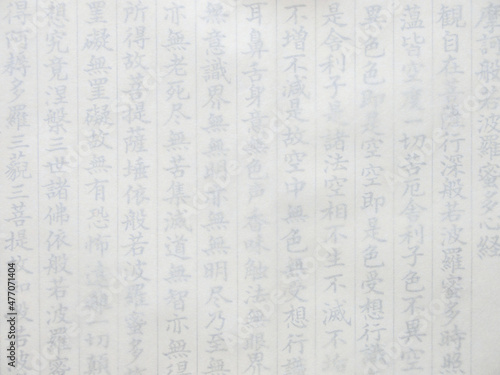 摩訶般若波羅蜜多心経
観自在菩薩行深般若波羅蜜多時照
蘊皆空度一切苦厄舎利子色不異空
異色色即是空空即是色受想行識
是舎利子是諸法空相不生不滅不垢
不増不減是故空中無色無受想行識
耳鼻舌身意無色声香味触法無眼界
無意識界無無明亦無無明尽乃至無
亦無老死尽無苦集滅道無智亦無得
所得故菩提薩埵依般若波羅蜜多故
罣礙無罣礙故無有恐怖遠離一切顛
想究竟涅槃三世諸佛依般若波羅蜜
得阿耨多羅三藐三菩提故知
Adobe Stock | #477071404